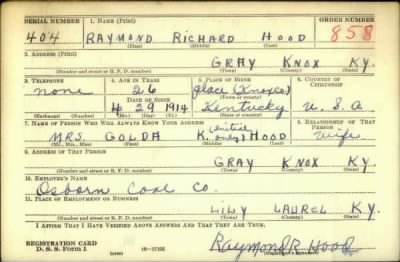 SERIAL NUMBER 1. NAME (Print) ORDER NUMBER
404 RAYMOND RICHARD HOOD 858
(First) (Middle) (Last)
2. ADDRESS (Print)
GRAY KNOX KY.
(Number and street or R. F. D. number) (Town) (County) (State)
3. TELEPHONE 4. AGE IN YEARS 5. PLACE OF BIRTH 6. COUNTRY OF CITIZENSHIP
none 26 place (Knox co)
DATE OF BIRTH (Town or county)
4 29 1914 Kentucky U.S.A
(Exchange) (Number) (Mo.) (Day) (Yr.) (State or country)
7. NAME OF PERSON WHO WILL ALWAYS KNOW YOUR ADDRESS 8. RELATIONSHIP OF THAT PERSON
MRS. GOLDA K. (initial only) HOOD wife
(Mr., Mrs., Miss) (First) (Middle) (Last)
9. ADDRESS OF THAT PERSON
GRAY KNOX KY.
(Number and street or R. F. D. number) (Town) (County) (State)
10. EMPLOYER'S NAME
Osborn Coal Co.
11. PLACE OF EMPLOYMENT OR BUSINESS
LILY LAUREL KY.
(Number and street or R. F. D. number) (Town) (County) (State)
I AFFIRM THAT I HAVE VERIFIED ABOVE ANSWERS AND THAT THEY ARE TRUE.
REGISTRATION CARD
D. S. S. Form 1 (over) 16-17105 Raymond R. Hood